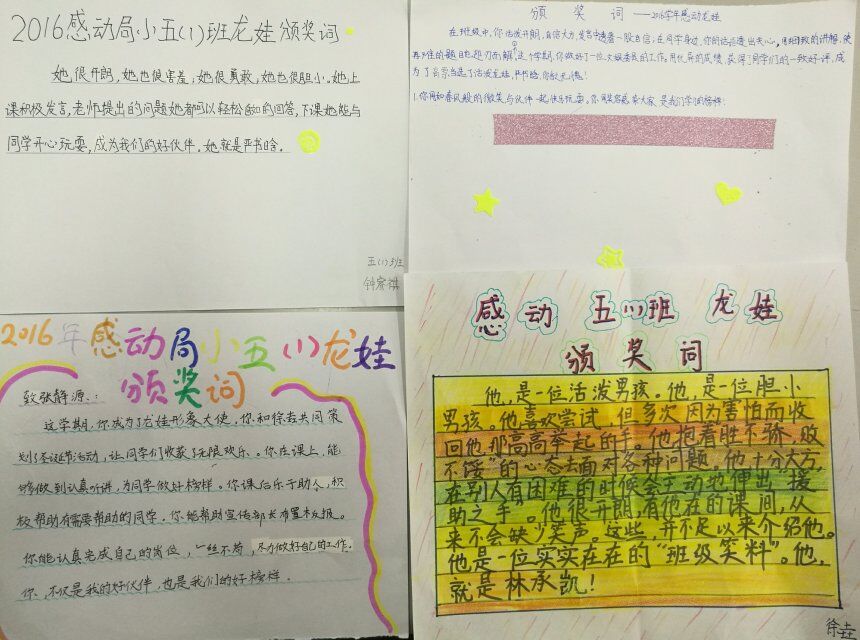 2016感动局小五(1)班龙娃颁奖词
她,很开朗,她也很害羞,她很勇敢,她也很胆小。她上
课积极发言,老师提出的问题她都可以轻松的回答,下课她能与
同学开心玩耍,成为我们的好伙伴。她就是严书晗.
五(1)班
钟睿祺
颁奖词——2016学年感动龙娃
在班级中,你活泼开朗,自信大方,发言中透着一股自信;在同学身边,你的话语透出关心,
成了
1.你用和春风般的微笑与伙伴一起快乐玩耍,
是我们学习的榜样!
2016年感动局小五(1)龙娃
颁奖词
致张静源:
这学期,你成为了龙娃形象大使,你和徐垚共同策
划了圣诞节活动,让同学们收获了无限欢乐。你在课上,能
够做到认真听讲,为同学做好榜样。你课后乐于助人,积
极帮助有需要帮助的同学。你能帮助宣传部长布置板报。
你能认真完成自己的岗位,一丝不苟,尽力做好自己的工作。
你,不仅是我的好伙伴,也是我们的好榜样.
感动五(1)班龙娃
颁奖词
他,是一位活泼男孩。他,是一位胆小
男孩。他喜欢尝试,但多次因为害怕而收
回他那高高举起的手。他抱着胜不骄,败
不馁"的心态去面对各种问题。他十分大方,
在别人有困难的时候会主动地伸出"援
助之手"。他很开朗,有他在的课间,从
来不会缺少笑声。这些,并不足以来介绍他。
他是一位实实在在的"班级笑料"。他,
就是林承凯!
徐垚